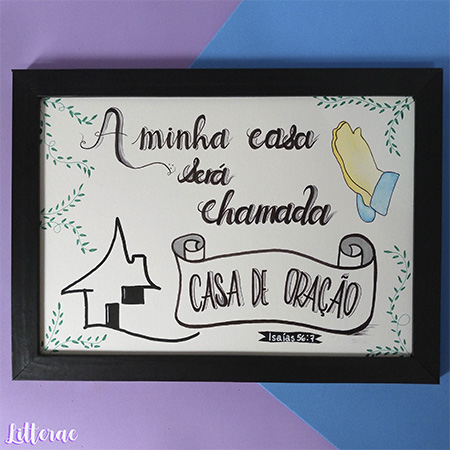 A minha casa
será
chamada
CASA DE ORAÇÃO
Isaías 56:7
Litterae